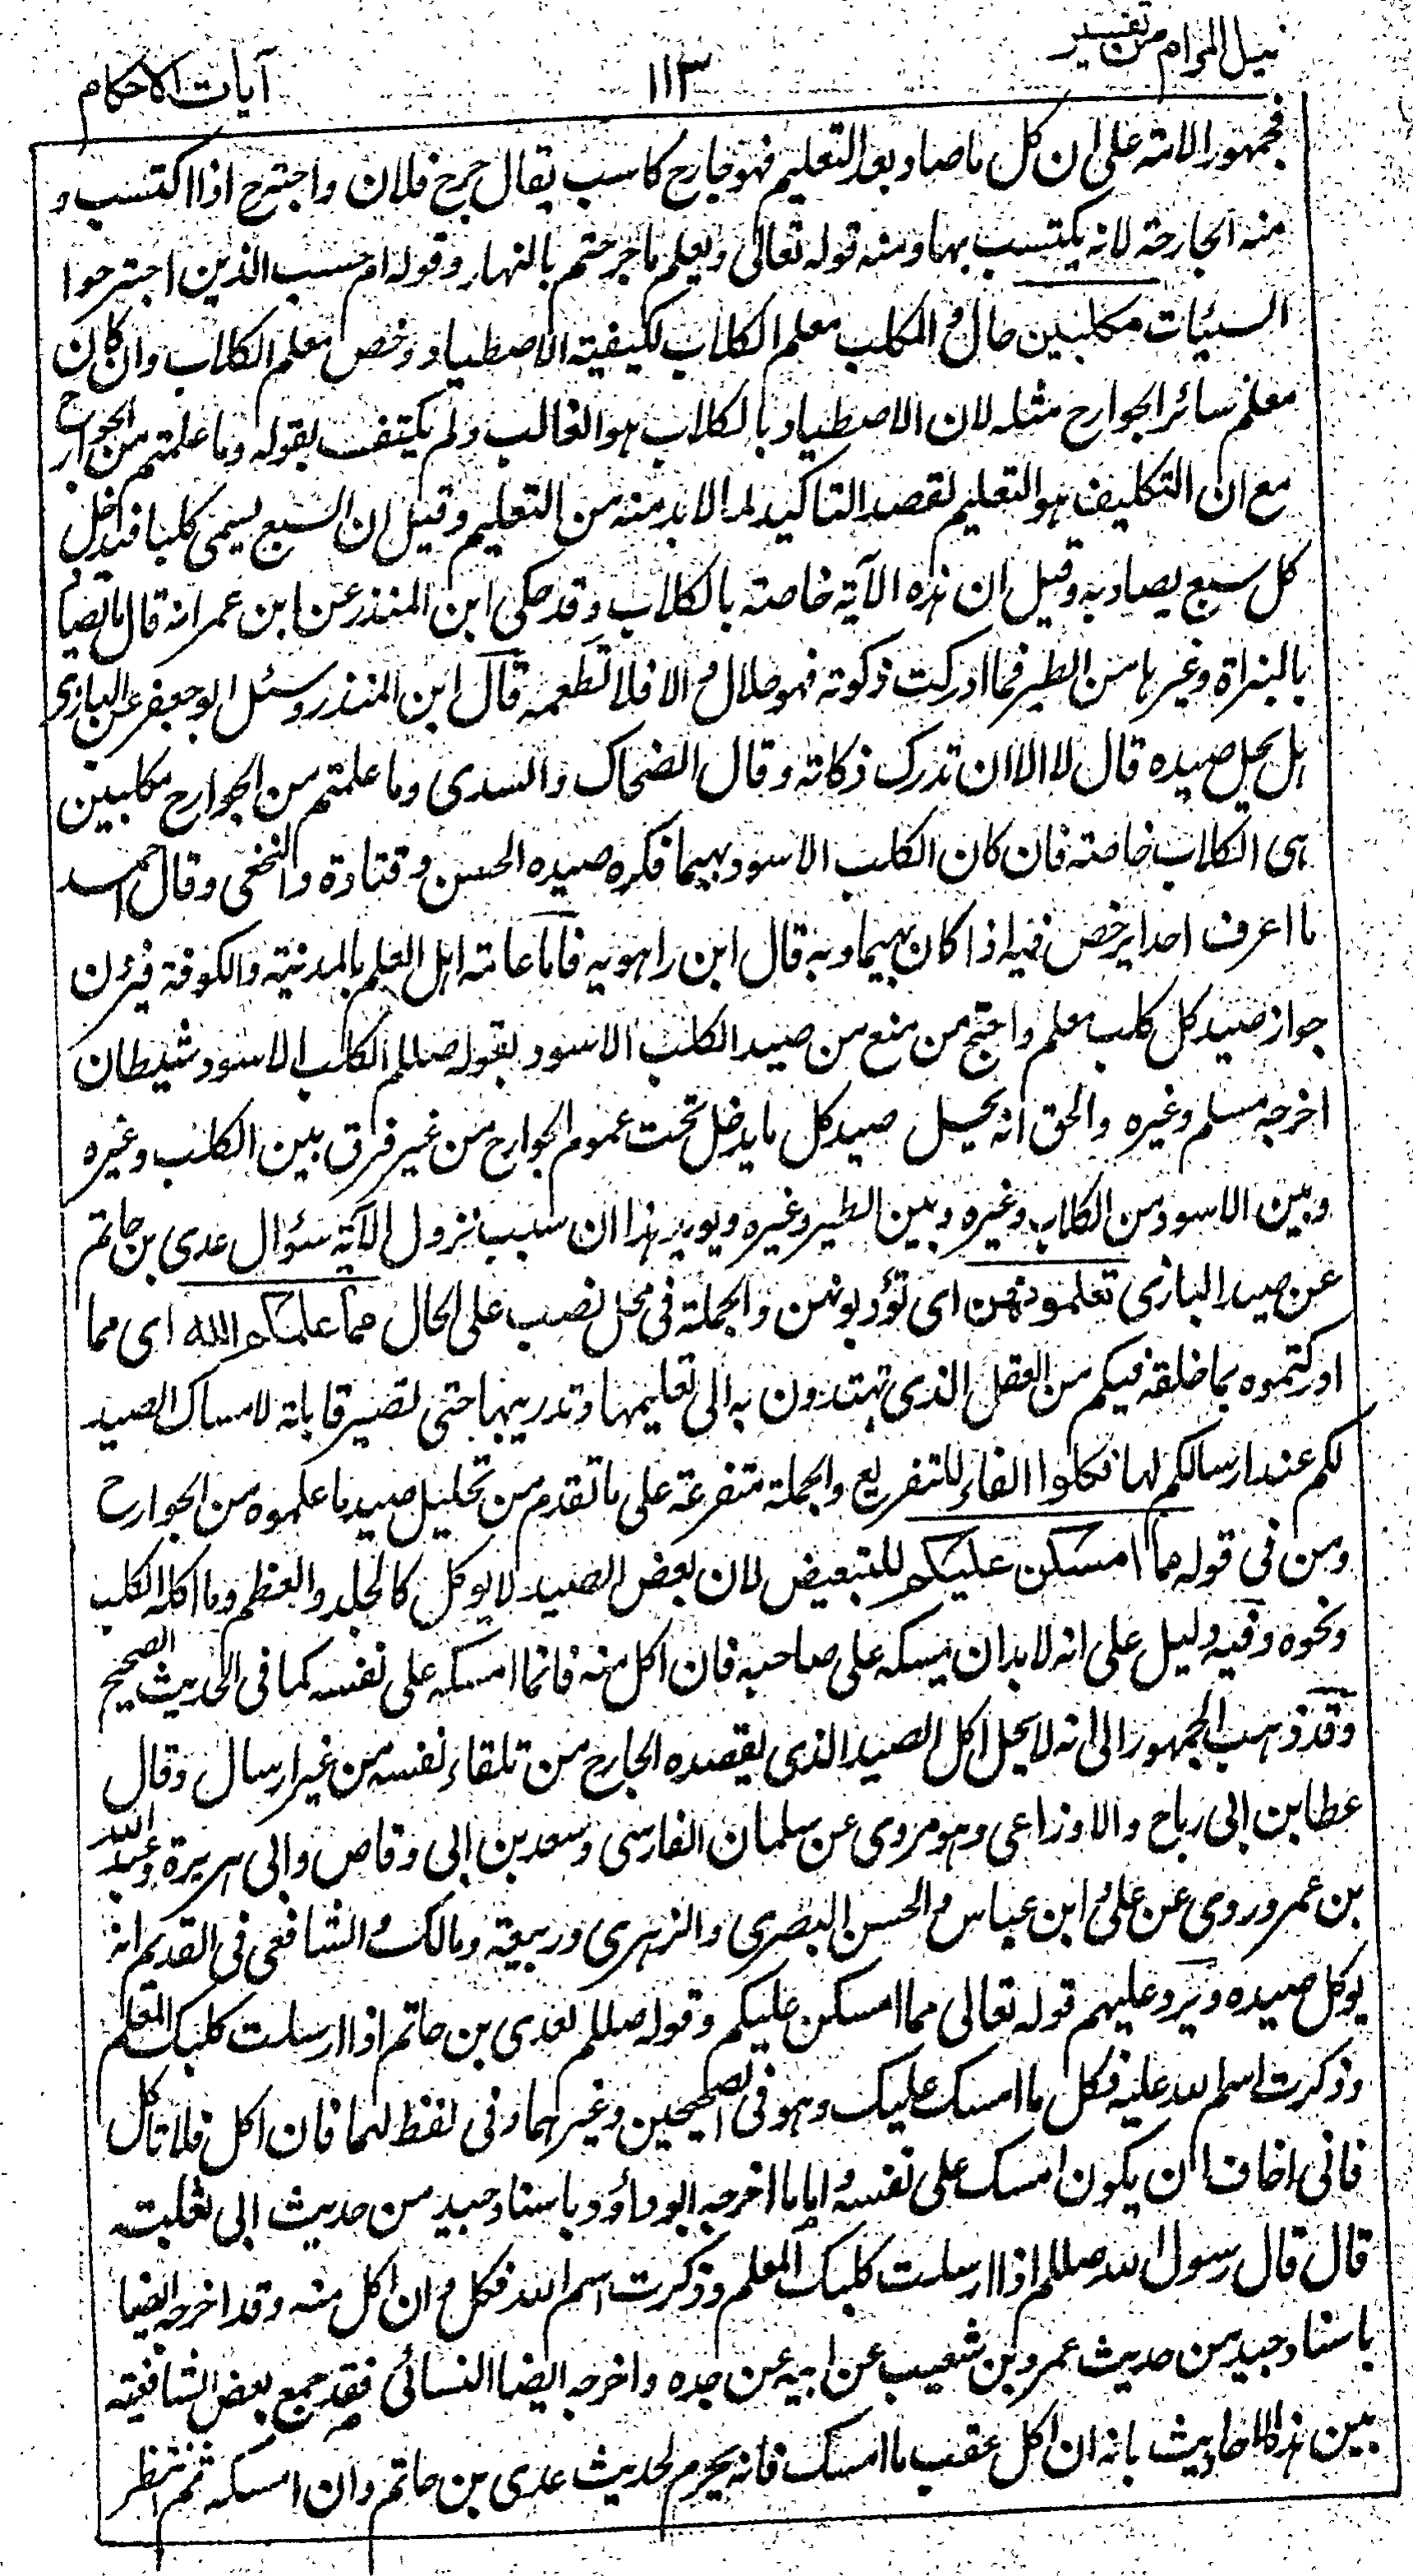 نيل المرام من تفسير
١١٣
آيات الاحكام
فجمهور الامة على ان كل ما صاد بعد التعليم فهو جارح كاسب يقال جرح فلان واجترح اذا اكتسب و
منه الجارحة لانه يكتسب بها ومنه قوله تعالى ويعلم ما جرحتم بالنهار وقوله ام حسب الذين اجترحوا
السيئات مكلبين حال والمكلب معلم الكلاب لكيفية الاصطياد وخص معلم الكلاب وان كان
معلم سائر الجوارح مثله لان الاصطياد بالكلاب هو الغالب ولم يكتف بقوله وما علمتم من الجوارح
مع ان التكليف هو التعليم لقصد التاكيد لما لابد منه من التعليم وقيل ان السبع يسمى كلبا فيدخل
كل سبع يصاد به وقيل ان هذه الآية خاصة بالكلاب وقد حكى ابن المنذر عن ابن عمر انه قال ما يصاد
بالبزاة وغيرها من الطير فما ادركت ذكوته فهو حلال والا فلا تطعمه قال ابن المنذر وسئل ابو جعفر عن البازى
هل يحل صيده قال لا الا ان تدرك ذكاته وقال الضحاك والسدى وما علمتم من الجوارح مكلبين
هى الكلاب خاصة فان كان الكلب الاسود بهيما فكره صيده الحسن وقتادة والنخعى وقال احمد
ما اعرف احدا يرخص فيه اذا كان بهيما وبه قال ابن راهويه فاما عامة اهل العلم بالمدينة والكوفة فيرون
جواز صيد كل كلب معلم واحتج من منع من صيد الكلب الاسود بقوله صللم الكلب الاسود شيطان
اخرجه مسلم وغيره والحق انه يحل صيد كل ما يدخل تحت عموم الجوارح من غير فرق بين الكلب وغيره
وبين الاسود من الكلاب وغيره وبين الطير وغيره ويويد هذا ان سبب نزول الآية سؤال عدى بن حاتم
عن صيد البازى تعلمونهن اى تؤدبونهن والجملة فى محل نصب على الحال مما علمكم الله اى مما
ادركتموه بما خلقه فيكم من العقل الذى تهتدون به الى تعليمها وتدريبها حتى تصير قابلة لامساك الصيد
لكم عند ارسالكم لها فكلوا الفاء للتفريع والجملة متفرعة على ما تقدم من تحليل صيد ما علموه من الجوارح
ومن فى قوله مما امسكن عليكم للتبعيض لان بعض الصيد لا يوكل كالجلد والعظم وما اكله الكلب
ونحوه وفيه دليل على انه لابد ان يمسكه على صاحبه فان اكل منه فانما امسكه على نفسه كما فى الحديث الصحيح
وقد ذهب الجمهور الى انه لا يحل اكل الصيد الذى يقصده الجارح من تلقاء نفسه من غير ارسال وقال
عطا بن ابى رباح والاوزاعى وهو مروى عن سلمان الفارسى وسعد بن ابى وقاص وابى هريرة وعبد الله
بن عمر وروى عن على وابن عباس والحسن البصرى والزهرى وربيعة ومالك والشافعى فى القديم انه
يوكل صيده ويرد عليهم قوله تعالى مما امسكن عليكم وقوله صللم لعدى بن حاتم اذا ارسلت كلبك المعلم
وذكرت اسم الله عليه فكل ما امسك عليك وهو فى الصحيحين وغيرهما وفى لفظ لهما فان اكل فلا تاكل
فانى اخاف ان يكون امسك على نفسه واما ما اخرجه ابو داؤد باسناد جيد من حديث ابى ثعلبة
قال قال رسول الله صللم اذا ارسلت كلبك المعلم وذكرت اسم الله فكل وان اكل منه وقد اخرجه ايضا
باسناد جيد من حديث عمرو بن شعيب عن ابيه عن جده واخرجه ايضا النسائى فقد جمع بعض الشافعية
بين هذه الاحاديث بانه ان اكل عقب ما امسك فانه يحرم لحديث عدى بن حاتم وان امسكه ثم انتظر